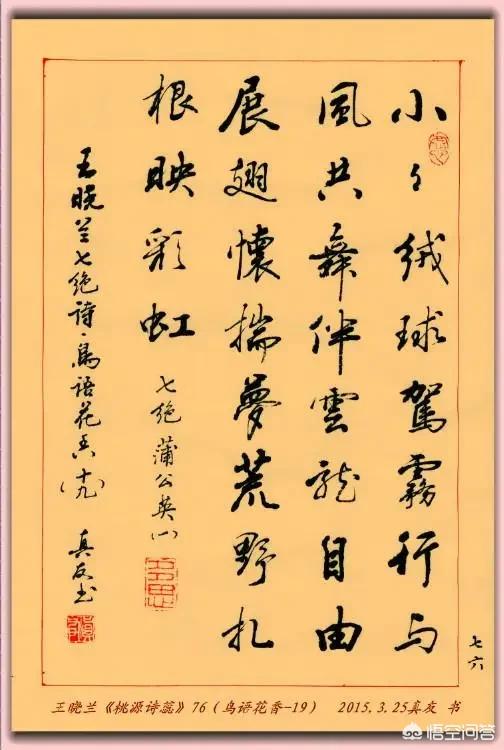 小々絨球駕霧行与
風共舞伴雲龍自由
展翅懷揣夢荒野扎
根映彩虹
七绝 蒲公英
王晓兰七绝诗·鸟语花香(十九) 真友书
七六
王晓兰《桃源诗蕊》76（鸟语花香-19） 2015.3.25真友 书
悟空问答